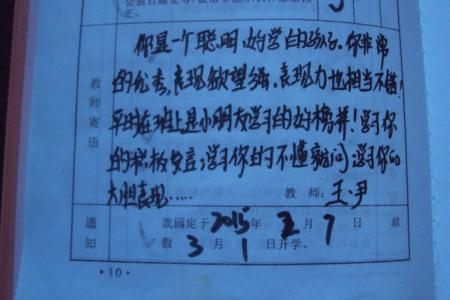 正。
你是一个聪明、好学的孩子。你非常
的优秀,表现欲望强,表现力也相当不错!
平时在班上是小朋友学习的好榜样!学习你
的积极发言;学习你的不懂就问;学习你的
大胆表现……
教师寄语
教 师: 王·尹
通知
我园定于2015年 2 月 7 日 放
假 3 月 1 日开学。
·10·